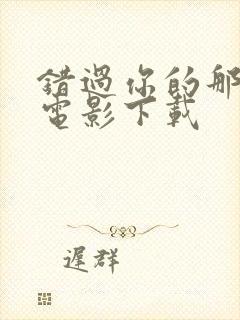 錯過你的那
電影下載
遲群